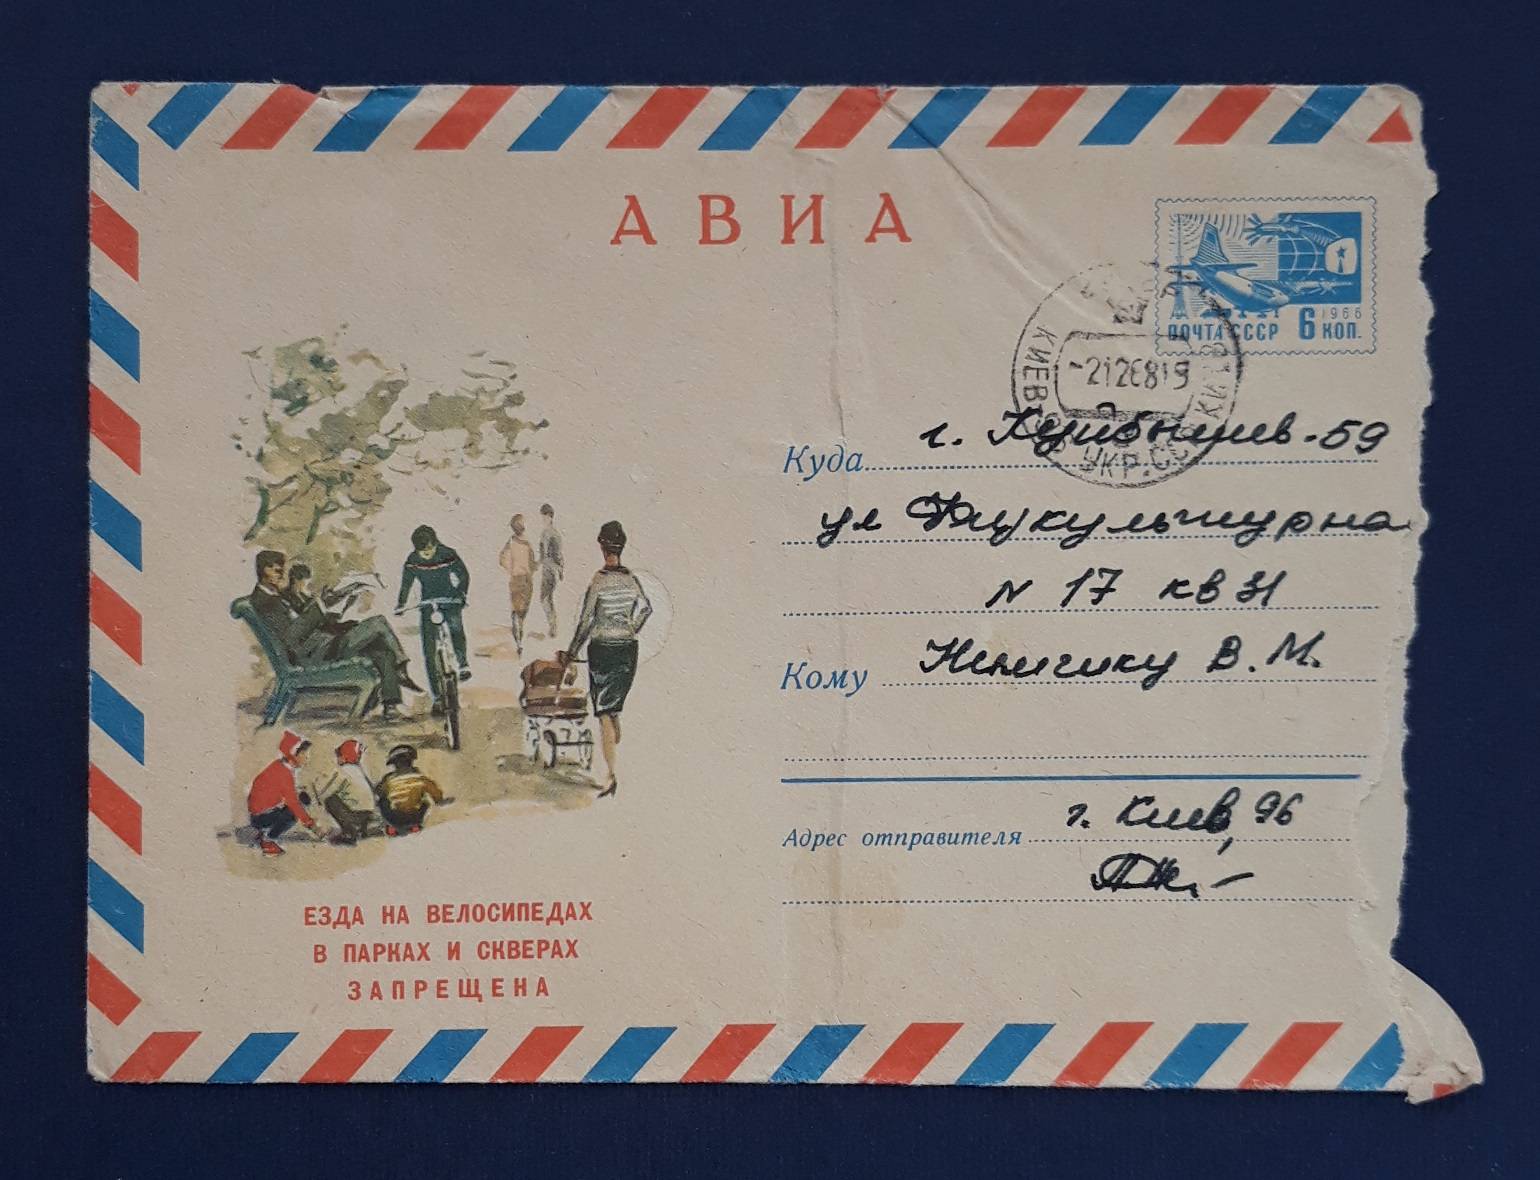 АВИА
ПОЧТА СССР 6 1966 КОП.
КИЕВ
-212 68 19
УКР.ССР
Куда г. Куйбышев-59
ул Физкультурна
N 17 кв 31
Кому В.М.
Адрес отправителя г. Киев, 96
ЕЗДА НА ВЕЛОСИПЕДАХ
В ПАРКАХ И СКВЕРАХ
ЗАПРЕЩЕНА